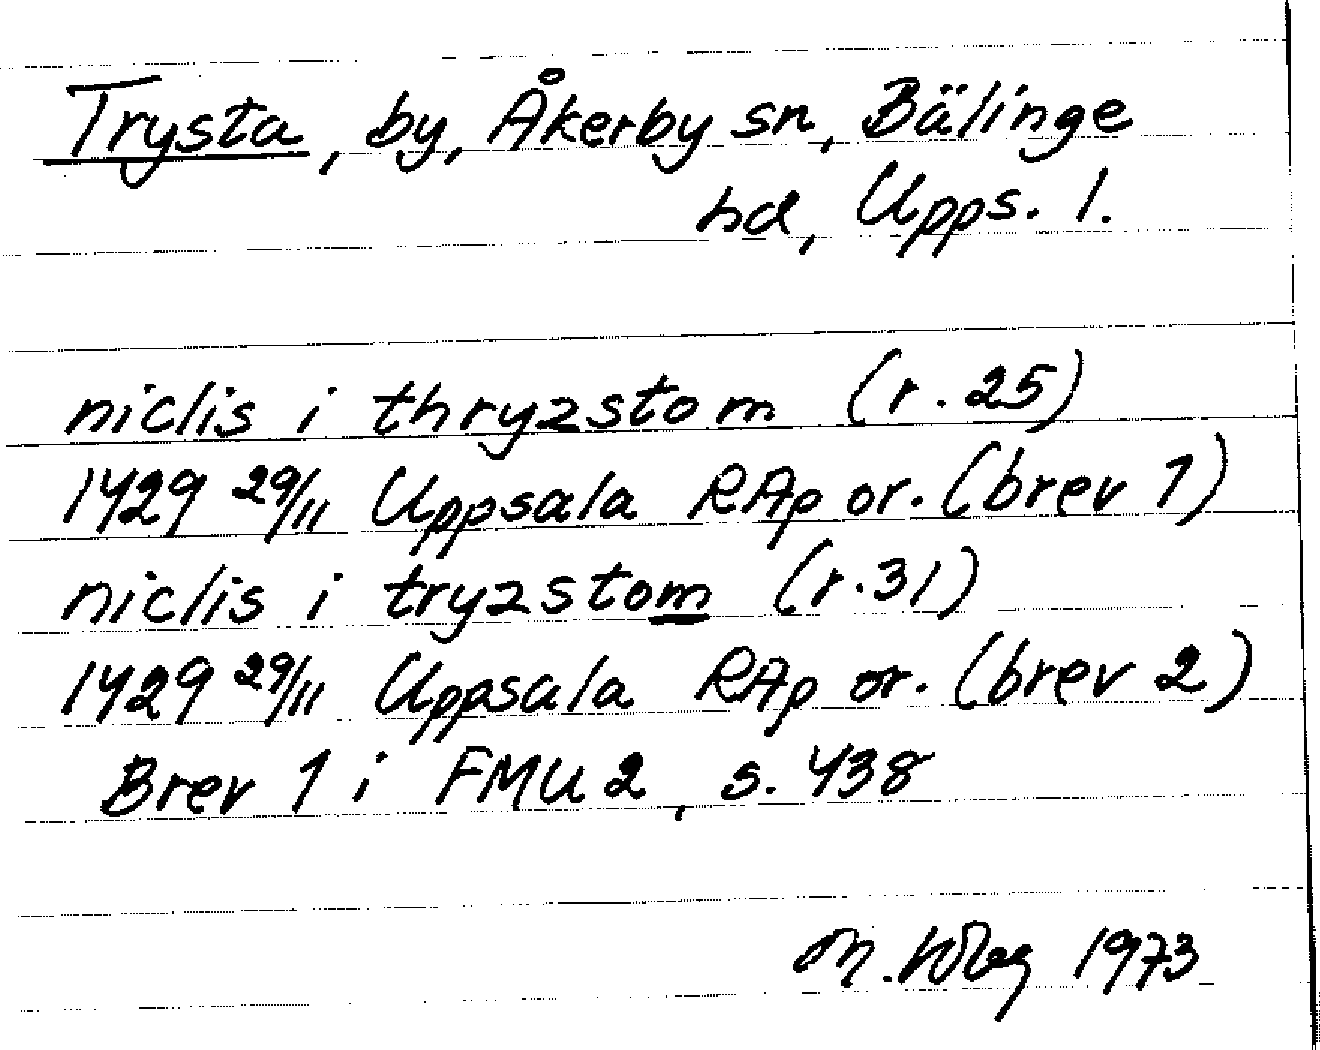 Trysta, by, Åkerby sn, Bälinge
hd, Upps. l.
niclis i thryzstom (r. 25)
1429 29/11 Uppsala RAp or. (brev 1)
niclis i tryzstom (r. 31)
1429 29/11 Uppsala RAp or. (brev 2)
Brev 1 i FMU 2, s. 438
M. 1973